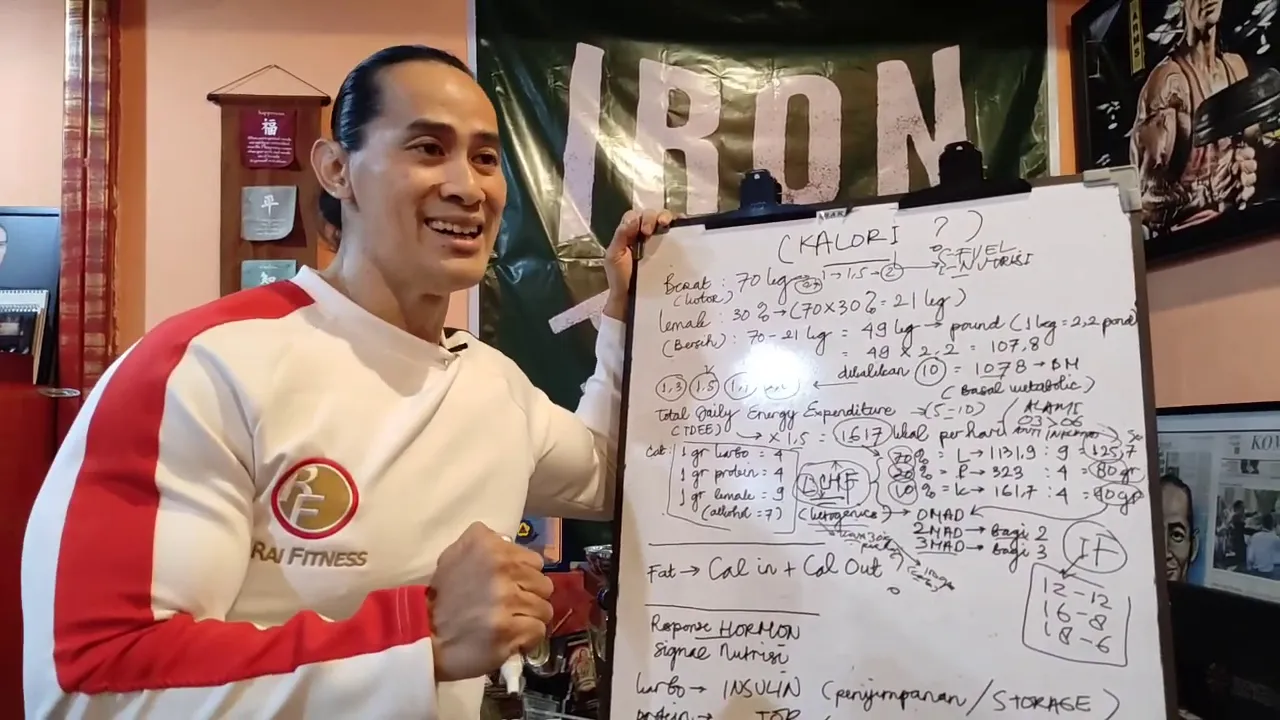 IRON
happiness
福
平
智
ABPS
KOM
RF
RAI FITNESS
(KALORI ?)
Berat : 70 kg → 1 → 1,5 → 2 → FUEL
(kotor) NUTRISI
lemak : 30 % → (70 x 30% = 21 kg)
(Bersih) : 70 - 21 kg = 49 kg → pound (1 kg = 2,2 pond
= 49 x 2,2 = 107,8
1,3 1,5 dikalikan 10 = 1078 → BM
(Basal metabolic)
Total Daily Energy Expenditure → (5-10) ALAMI
(TDEE) → x 1.5 = 1617 kkal per hari 03 > 06
Cat: 1 gr karbo = 4 70% = L → 1131,9 : 9 = 125,7
1 gr protein = 4 LCHF 20% = P → 323 : 4 = 80 gr
1 gr lemak = 9 10% = K → 161,7 : 4 = 40 gr
(alkohol = 7) (ketogenics) → OMAD
2MAD → Bagi 2
3MAD → Bagi 3
IF
Fat → Cal in + Cal Out
12 - 12
16 - 8
18 - 6
Response HORMON
Signal Nutrisi
karbo → INSULIN (penyimpanan / STORAGE)
protein →